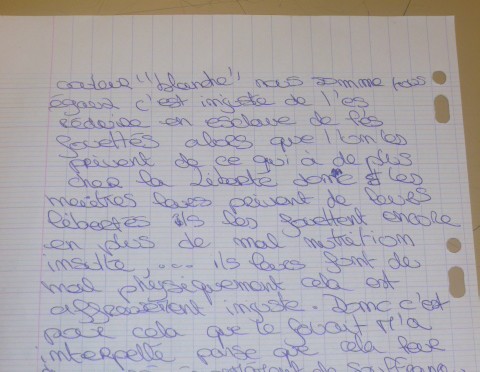 couleur "blanche" nous somme tous
égaux c'est injuste de l'es
réduire en esclave de les
fouettés alors que l'on les
privent de ce qui à de plus
cher la Liberté donc les
maîtres leurs privent de leurs
libertés ils les fouettent encore
en plus de mal nutrition
insulte, .... ils leurs font de
mal physiquement cela est
injuste. Donc c'est
pour cela que le fouet m'a
interpellé parse que cela leur
de souffrance